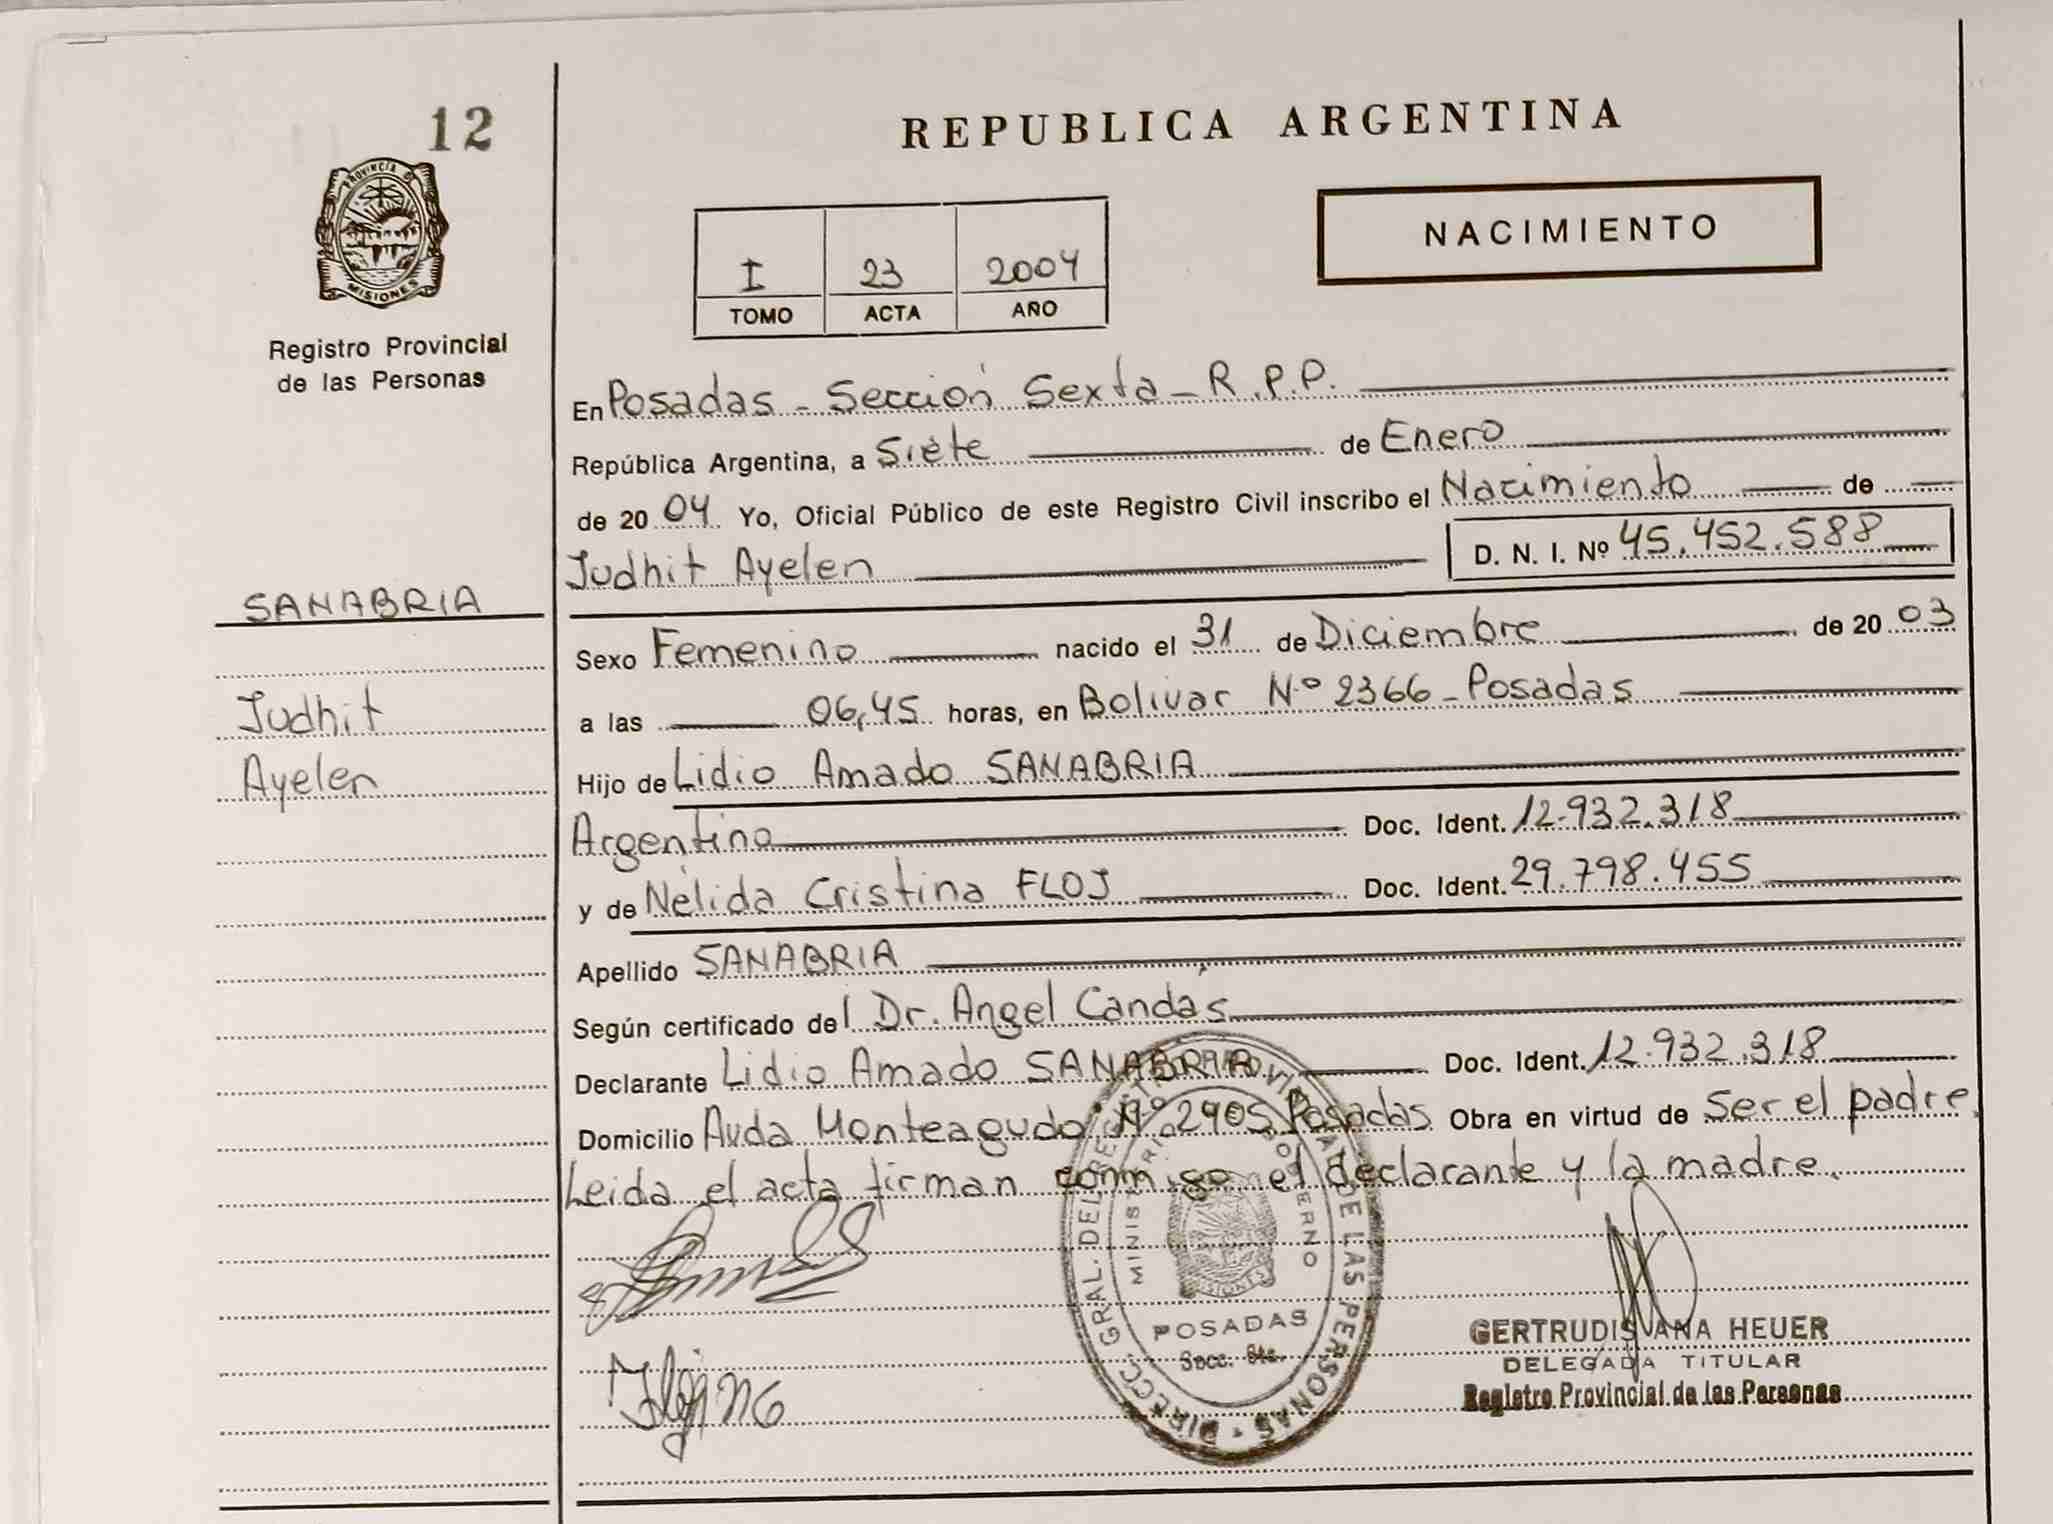 12
PROVINCIA D
MISIONES
Registro Provincial
de las Personas
SANABRIA
Judhit
Ayelen
REPUBLICA ARGENTINA
I 23 2004
TOMO ACTA AÑO
NACIMIENTO
En Posadas - Sección Sexta - R.P.P.
República Argentina, a Siete de Enero
de 20 04 Yo, Oficial Público de este Registro Civil inscribo el Nacimiento de
Judhit Ayelen D. N. I. Nº 45.452.588
Sexo Femenino nacido el 31 de Diciembre de 20 03
a las 06,45 horas, en Bolivar Nº 2366 - Posadas
Hijo de Lidio Amado SANABRIA
Argentino Doc. Ident. 12.932.318
y de Nélida Cristina FLOJ Doc. Ident. 29.798.455
Apellido SANABRIA
Según certificado del Dr. Angel Candás
Declarante Lidio Amado SANABRIA Doc. Ident. 12.932.318
Domicilio Avda Monteagudo Nº 2905 Posadas Obra en virtud de ser el padre.
Leida el acta firman conmigo el declarante y la madre.
DIRECC. GRAL. DEL REGISTRO PROVINCIAL DE LAS PERSONAS
MINISTERIO DE GOBIERNO
POSADAS
Secc. 6ta.
GERTRUDIS ANA HEUER
DELEGADA TITULAR
Registro Provincial de las Personas